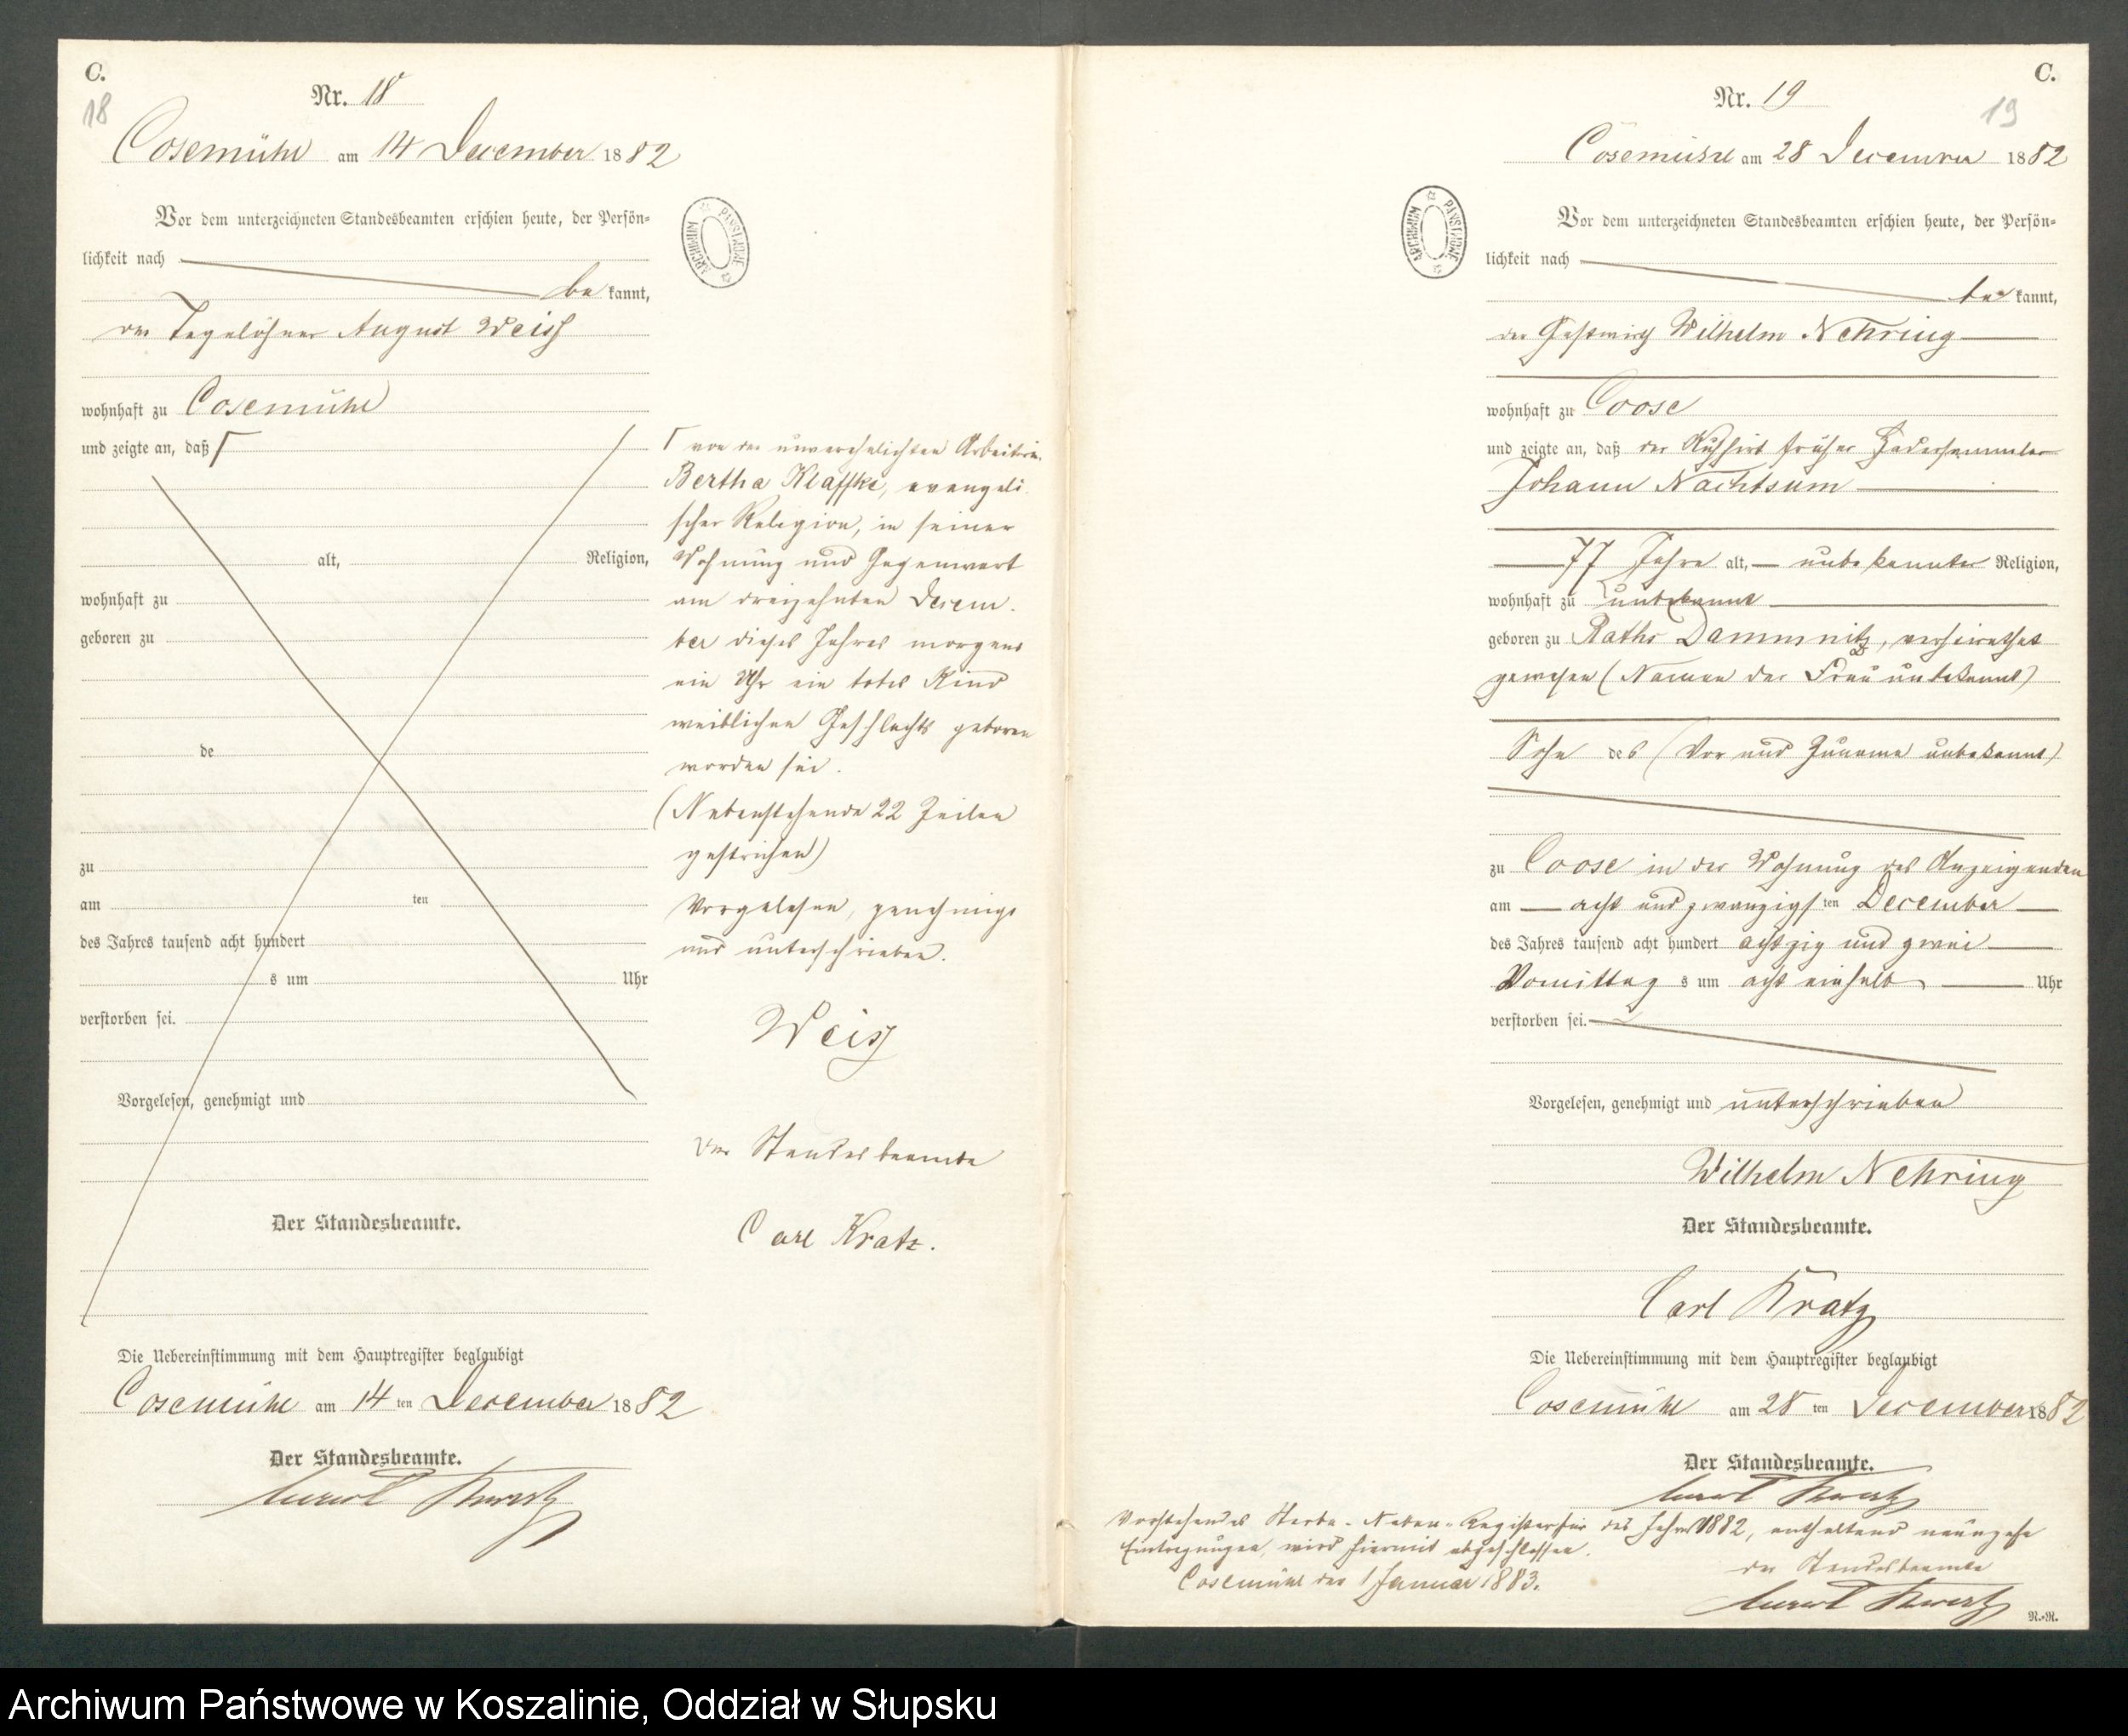 C.
18
Nr. 18
Cosemühl am 14 December 1882
Vor dem unterzeichneten Standesbeamten erschien heute, der Persön-
lichkeit nach
be kannt,
der Tagelöhner August Weiß
wohnhaft zu Cosemühl
und zeigte an, daß ┌
alt, Religion,
wohnhaft zu
geboren zu
de
zu
am ten
des Jahres tausend acht hundert
s um Uhr
verstorben sei.
Vorgelesen, genehmigt und
Der Standesbeamte.
┌ von der unverehelichten Arbeiterin
Bertha Klaffke, evangeli
scher Religion, in seiner
Wohnung und Gegenwart
am dreizehnten Decem
ber dieses Jahres morgens
ein Uhr ein todtes Kind
weiblichen Geschlechts geboren
worden sei.
(Nebenstehende 22 Zeilen
gestrichen)
Vorgelesen, genehmigt
und unterschrieben.
Weiß
Der Standesbeamte
Carl Kratz.
Die Uebereinstimmung mit dem Hauptregister beglaubigt
Cosemühl am 14 ten December 1882
Der Standesbeamte.
Carl Kratz
ARCHIWUM PAŃSTWOWE
C.
19
Nr. 19
Cosemühl am 28 December 1882
Vor dem unterzeichneten Standesbeamten erschien heute, der Persön-
lichkeit nach
be kannt,
der Gastwirth Wilhelm Nehring
wohnhaft zu Coose
und zeigte an, daß der Kuhhirt früher Hadersammler
Johann Nachtsum
77 Jahre alt, unbekannter Religion,
wohnhaft zu unbekannt
geboren zu Raths Dammnitz, verheirathet
gewesen (Namen der Frau unbekannt)
Sohn des (Vor und Zuname unbekannt)
zu Coose in der Wohnung des Anzeigenden
am acht und zwanzigs ten December
des Jahres tausend acht hundert achtzig und zwei
Vormittag s um acht einhalb Uhr
verstorben sei.
Vorgelesen, genehmigt und unterschrieben
Wilhelm Nehring
Der Standesbeamte.
Carl Kratz
Die Uebereinstimmung mit dem Hauptregister beglaubigt
Cosemühl am 28 ten December 1882
Der Standesbeamte.
Carl Kratz
Vorstehendes Sterbe-Neben-Register für das Jahr 1882, enthaltend neunzehn
Eintragungen, wird hiermit abgeschlossen.
Cosemühl den 1 Januar 1883.
der Standesbeamte
Carl Kratz
N.-R.
ARCHIWUM PAŃSTWOWE
Archiwum Państwowe w Koszalinie, Oddział w Słupsku